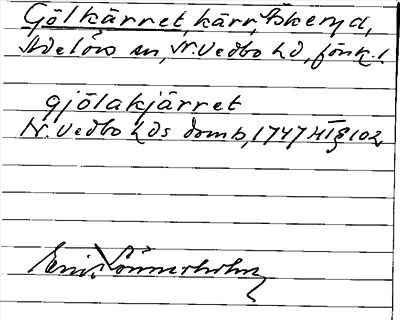 Gölkärret, kärr, Askeryd,
Adelövs sn, N. Vedbo hd, Jönk. l.
gjölakjärret
N. Vedbo hds domb, 1747 HT § 102